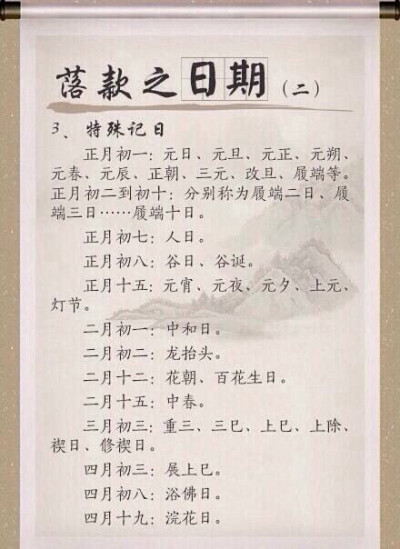 落款之日期（二）
3、特殊记日
正月初一：元日、元旦、元正、元朔、
元春、元辰、正朝、三元、改旦、履端等。
正月初二到初十：分别称为履端二日、履
端三日……履端十日。
正月初七：人日。
正月初八：谷日、谷诞。
正月十五：元宵、元夜、元夕、上元、
灯节。
二月初一：中和日。
二月初二：龙抬头。
二月十二：花朝、百花生日。
二月十五：中春。
三月初三：重三、三巳、上巳、上除、
禊日、修禊日。
四月初三：展上巳。
四月初八：浴佛日。
四月十九：浣花日。